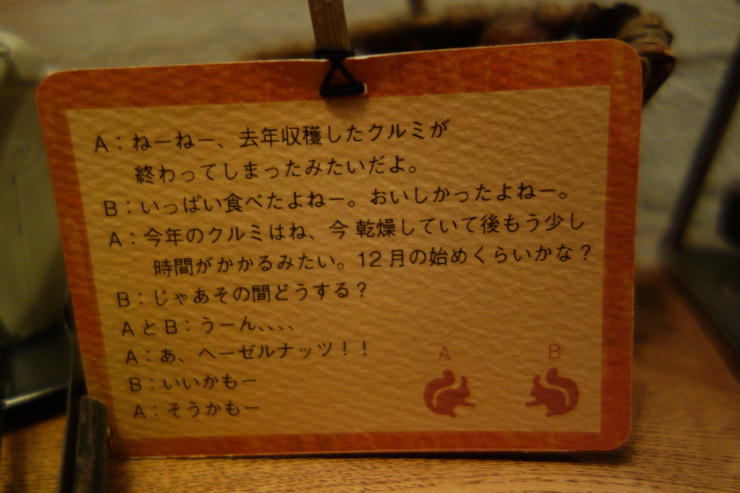 A：ねーねー、去年収穫したクルミが
終わってしまったみたいだよ。
B：いっぱい食べたよねー。おいしかったよねー。
A：今年のクルミはね、今 乾燥していて後もう少し
時間がかかるみたい。12月の始めくらいかな？
B：じゃあその間どうする？
AとB：うーん、、、、
A：あ、ヘーゼルナッツ！！
B：いいかもー
A：そうかもー
A B